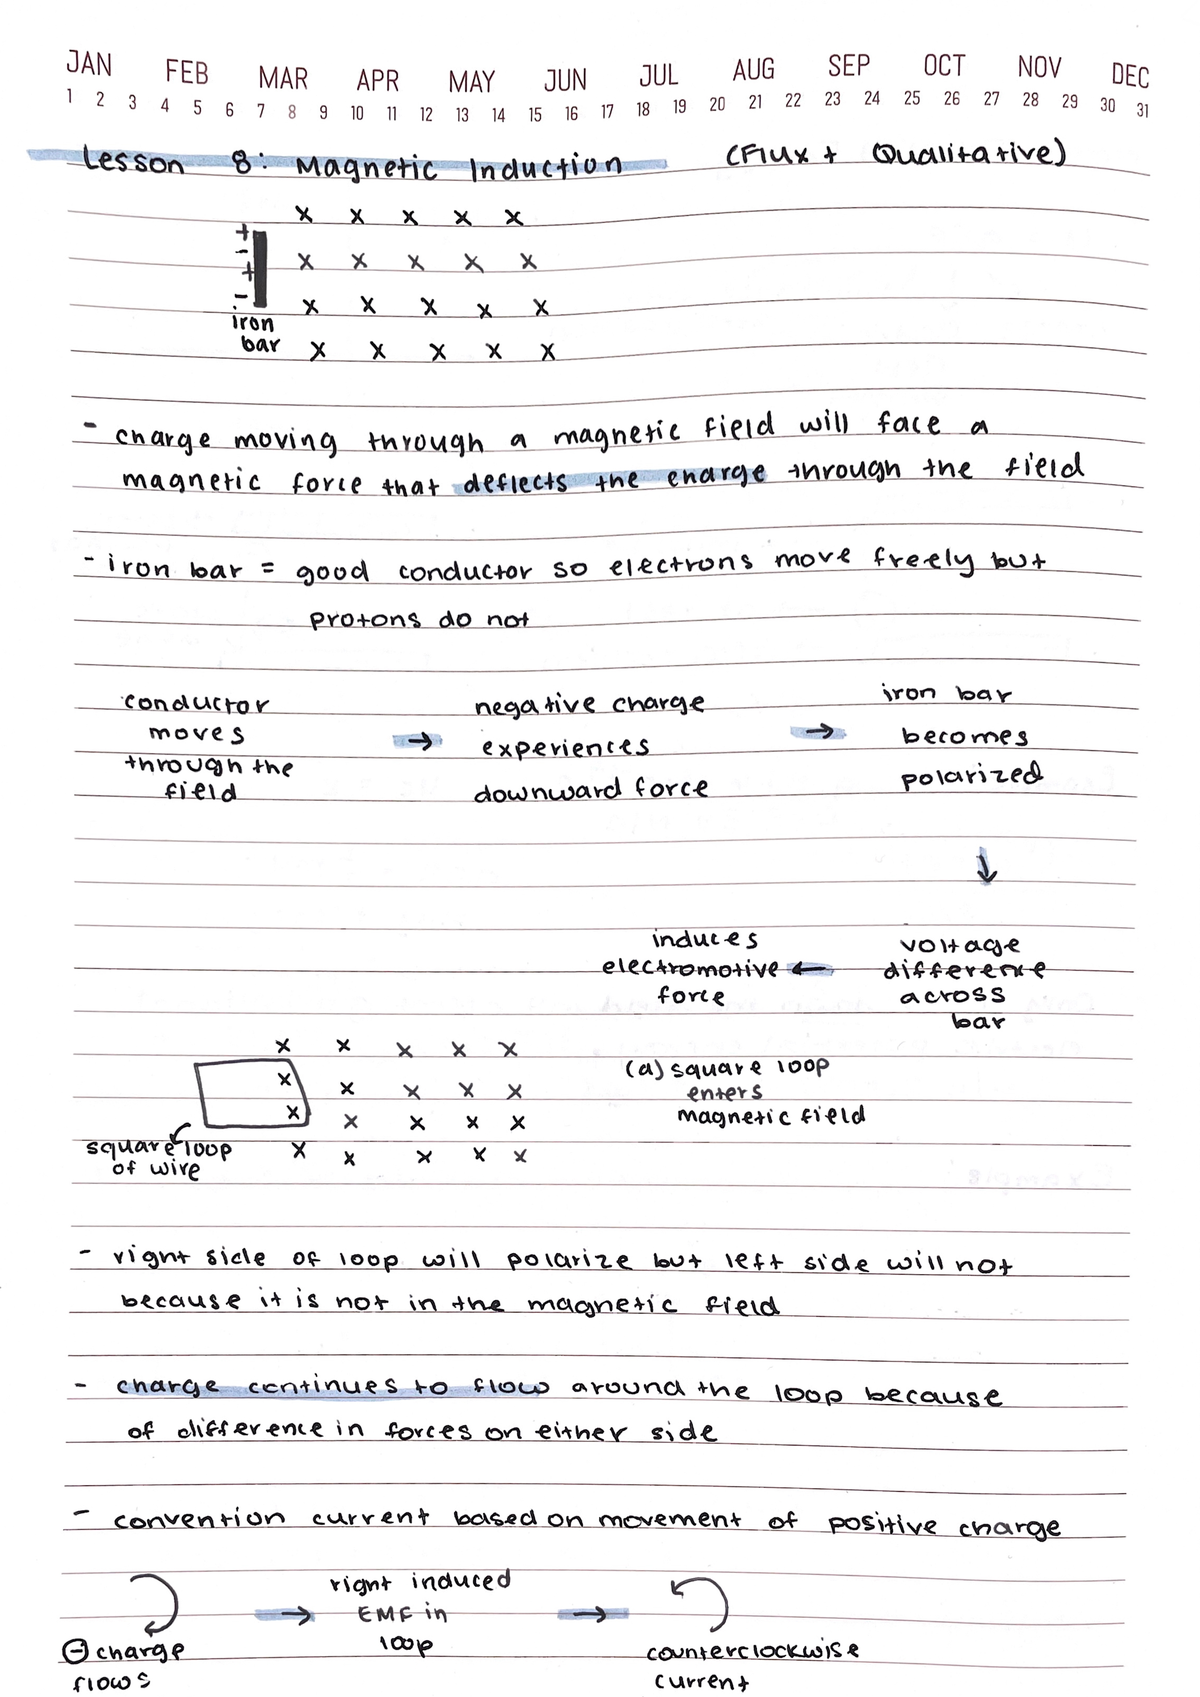 JAN FEB MAR APR MAY JUN JUL AUG SEP OCT NOV DEC
1 2 3 4 5 6 7 8 9 10 11 12 13 14 15 16 17 18 19 20 21 22 23 24 25 26 27 28 29 30 31
Lesson 8: Magnetic Induction (Flux + Qualitative)
x x x x x
+
-
x x x x x
+
-
x x x x x
iron
bar
x x x x x
- charge moving through a magnetic field will face a
magnetic force that deflects the charge through the field
- iron bar = good conductor so electrons move freely but
protons do not
conductor
moves
through the
field
→
negative charge
experiences
downward force
→
iron bar
becomes
polarized
↓
voltage
difference
across
bar
←
induces
electromotive
force
x x x x x
x x x x x
x x x x x
x x x x x
square loop
of wire
(a) square loop
enters
magnetic field
- right side of loop will polarize but left side will not
because it is not in the magnetic field
- charge continues to flow around the loop because
of difference in forces on either side
- convention current based on movement of positive charge
⊖ charge
flows
→
right induced
EMF in
loop
→
counterclockwise
current